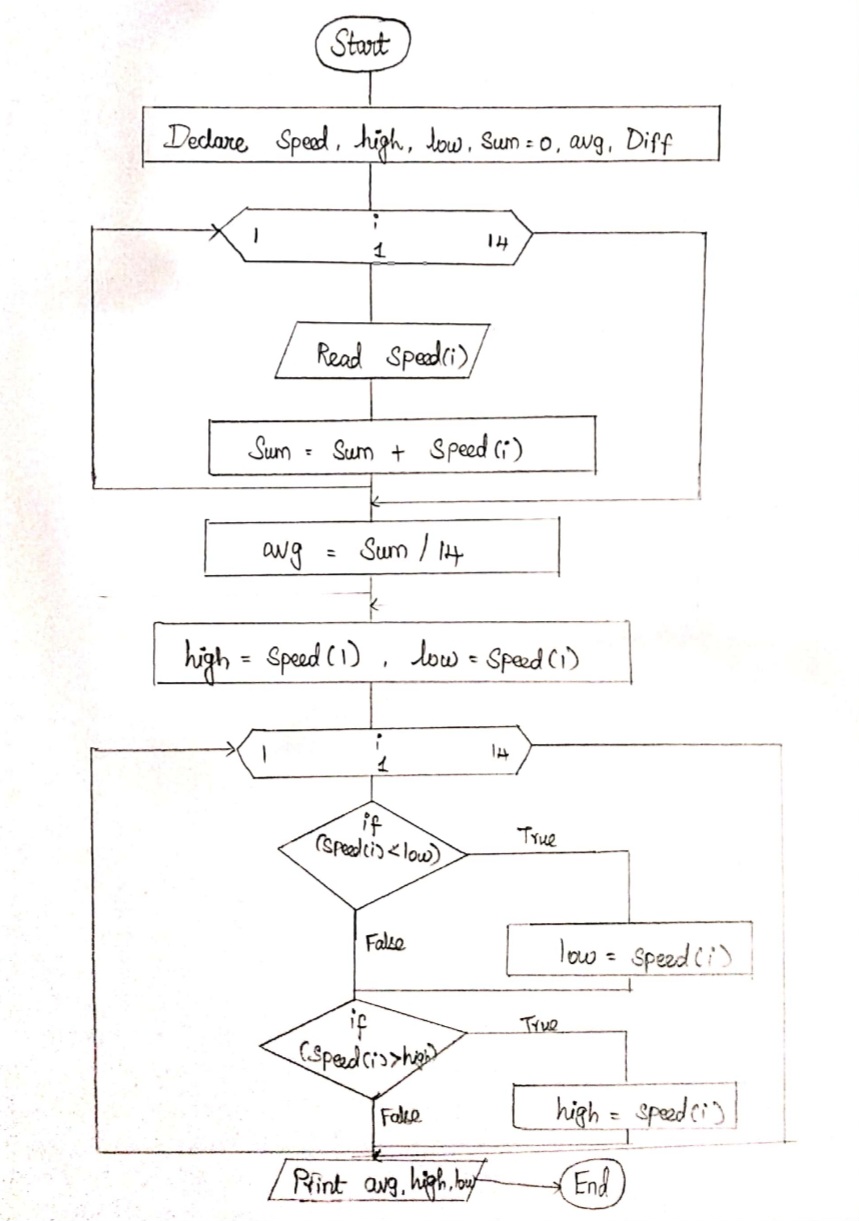 Start
Declare Speed, high, low, Sum = 0, avg, Diff
i
1 14
1
Read Speed(i)
Sum = Sum + Speed(i)
avg = Sum / 14
high = Speed(1), low = Speed(1)
i
1 14
1
if
(Speed(i) < low)
True
False
low = Speed(i)
if
(Speed(i) > high)
True
False
high = Speed(i)
Print avg, high, low
End